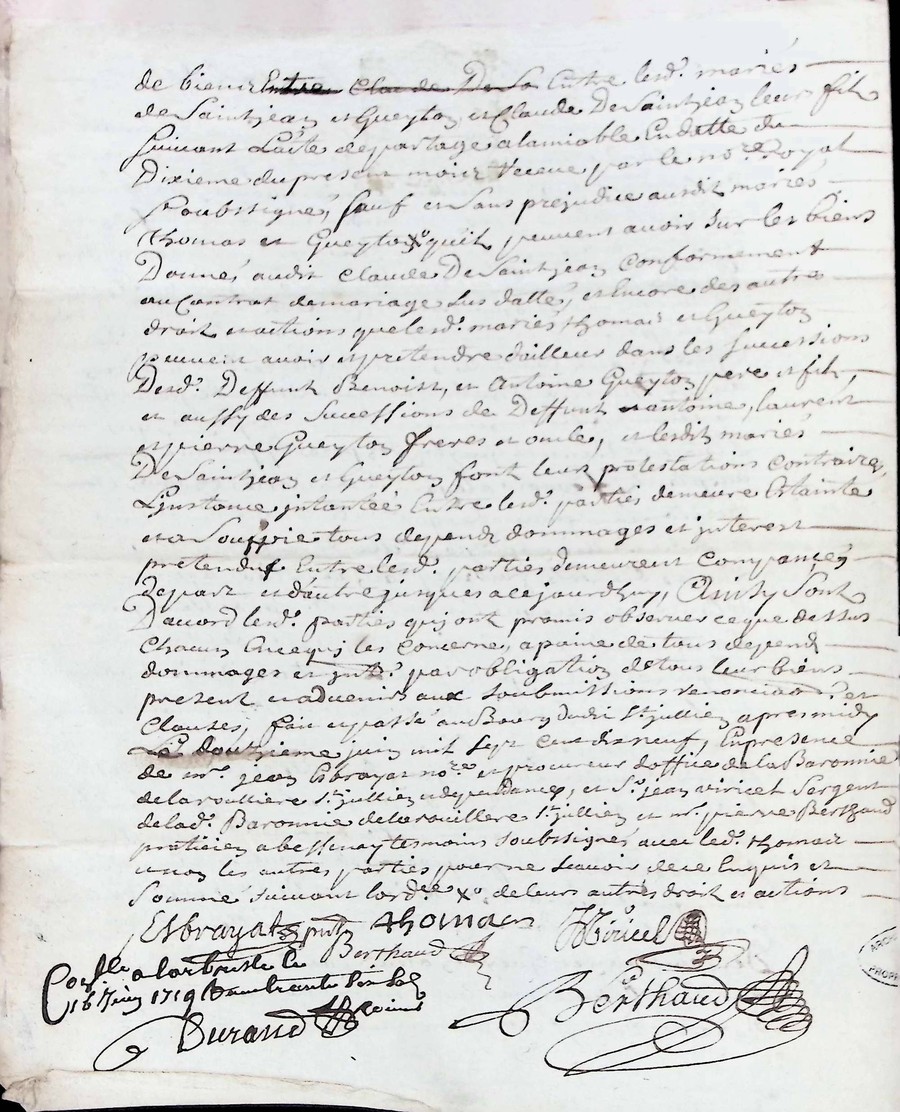 de biens Entre Claude De Sa Entre lesd. mariés
de Saintjean et Gueyton et Claude De Saintjean leur fils
suivant Lacte departage alamiable En datte du
Dixieme du present mois Receue par le nore. Royal
soubssigné, sauf et sans prejudice ausdit mariés
thomas et Gueyton Xo quils peuvent avoir sur les biens
Donné, audit claude De Saintjean conformement
au Contrat demariage sus datté, et Encore des autres
droit et actions que lesd. mariés thomas et Gueyton
peuvent avoir et pretendre dailleurs dans les successions
Desd. Deffunt Benoist, et Antoine Gueyton pere et fils,
et aussy des successions de Deffunt antoine, laurent
et pierre Gueyton freres et oncle, et lesdit mariés
De Saintjean et Gueyton font leurs protestations contraires,
L'instance intantée Entre lesd. parties demeure Etainte
et assouppie tous depends dommages et interest
pretenduf Entre lesd. parties demeurent compancés
depart et dautre jusques acejourdhuy, Ainsy sont
D'acord lesd. parties qui ont promis observer ceque dessus
chacun Encequi les concerne, apaine de tous depend
dommages et jnts. par obligation de tous leur biens
present et advenir aux soubmissions renonciaon. et
clauses, fait et passé au Bourg dudit st jullien apres midy
Le douzieme juin mil sept cent dix neuf, En presence
de mr. jean Esbrayat nore. et procureur doffice de la Baronnie
delaroulliere st jullien et dependances, et Sr. jean viricel sergent
delad. Baronnie delarouillere st jullien et mr. pierre Berthaud
praticien abessenay tesmoins soubssignés avec led. thomas
et non les autres parties pour ne scavoir dece Enquis et
sommé suivant lordce Xo de leurs autres droit et actions
Esbrayat pnt thomas JViricel
Berthaud
Conlle alarbresle le
16 juin 1719
Durand
Berthaud